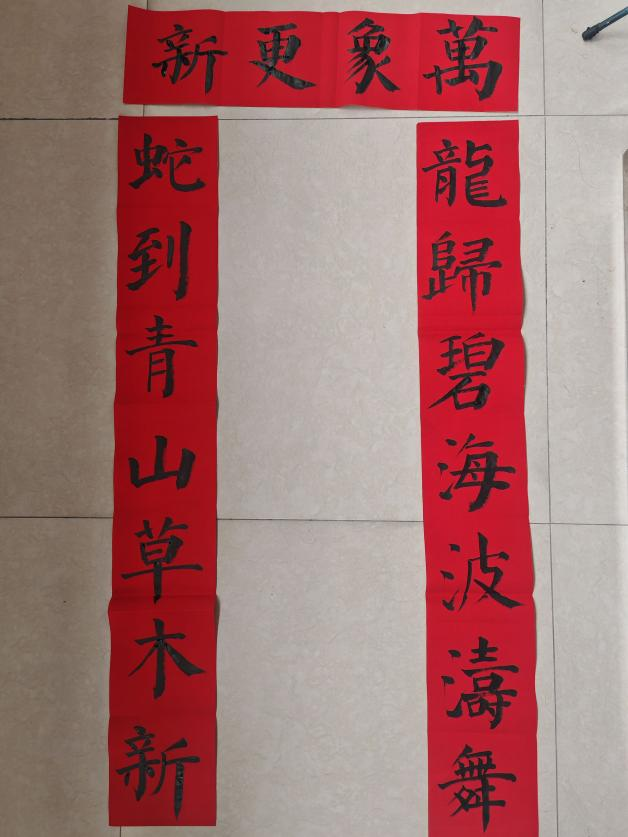 萬象更新
龍歸碧海波濤舞
蛇到青山草木新